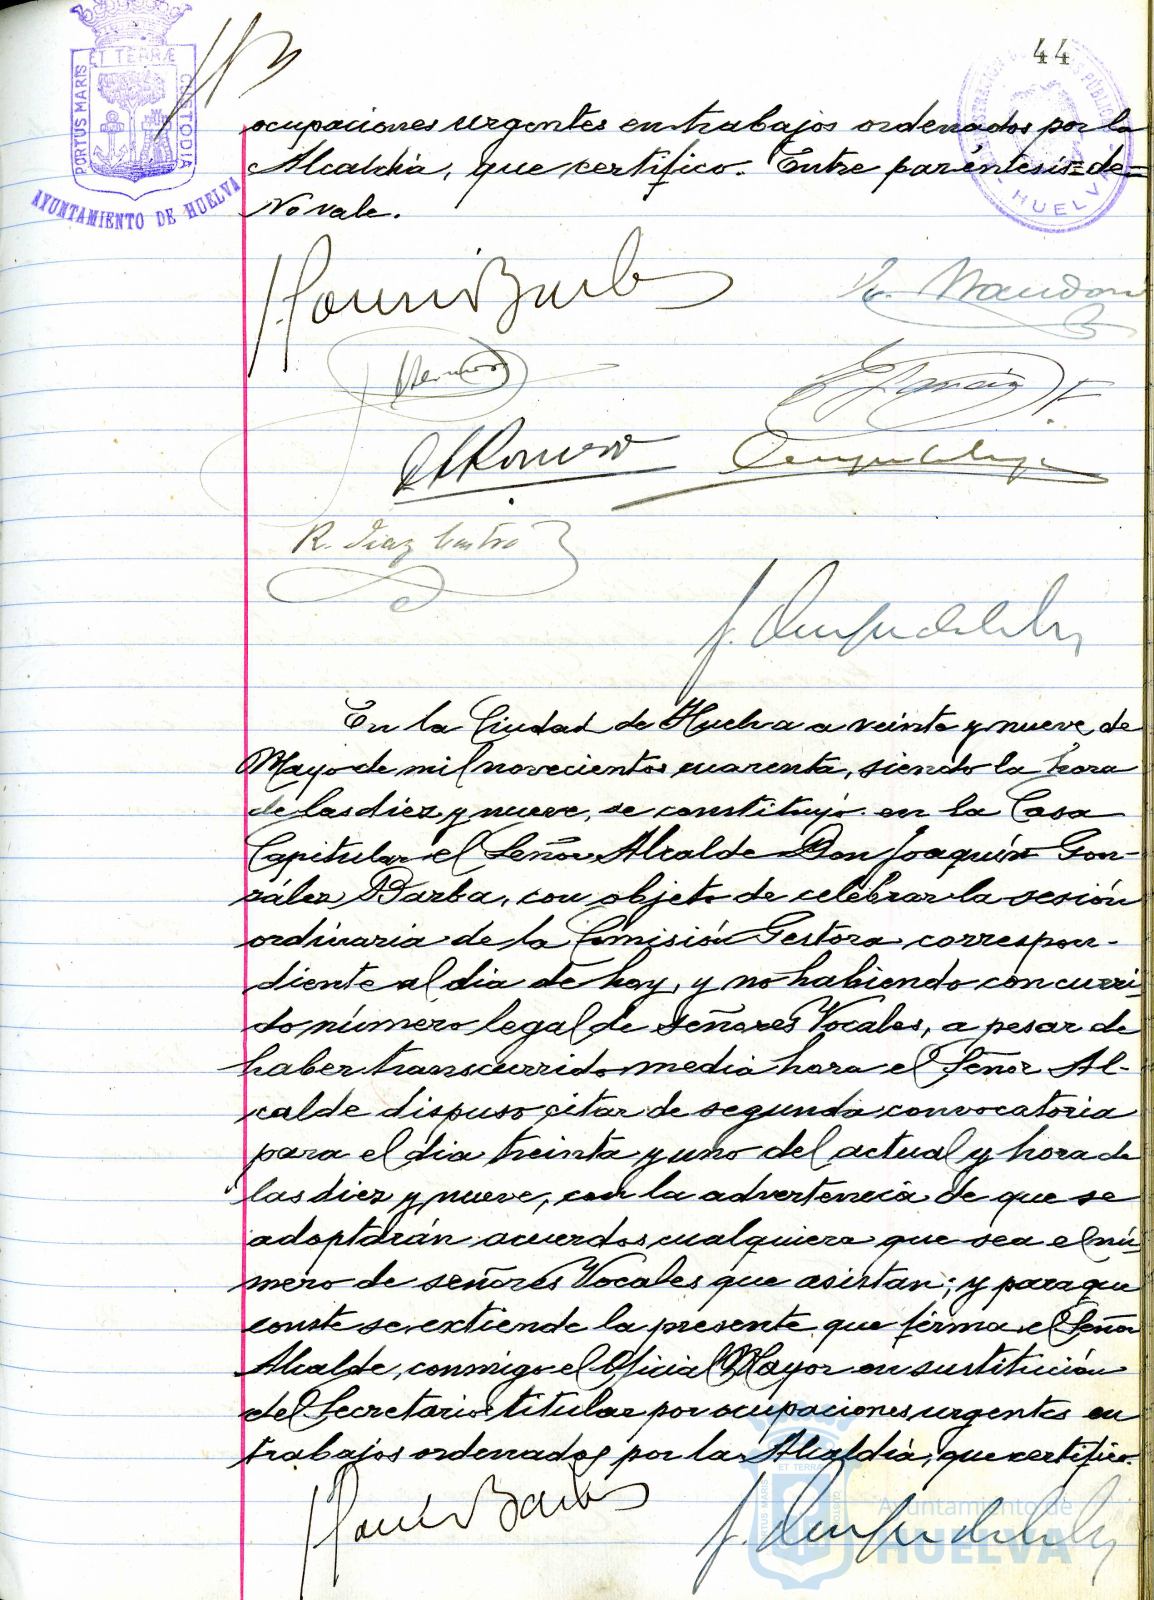 44
PORTUS MARIS ET TERRÆ CUSTODIA
AYUNTAMIENTO DE HUELVA
HUELVA
ocupaciones urgentes en trabajos ordenados por la
Alcaldía, que certifico. Entre paréntesis=de=
No vale.
R. Diaz Castro
En la Ciudad de Huelva a veinte y nueve de
Mayo de mil novecientos cuarenta, siendo la hora
de las diez y nueve, se constituyó en la Casa
Capitular el Señor Alcalde Don Joaquín Gon-
zález Barba, con objeto de celebrar la sesión
ordinaria de la Comisión Gestora correspon-
diente al dia de hoy, y no habiendo concurri-
do número legal de señores Vocales, a pesar de
haber transcurrido media hora el Señor Al-
calde dispuso citar de segunda convocatoria
para el dia treinta y uno del actual y hora de
las diez y nueve, con la advertencia de que se
adoptarán acuerdos cualquiera que sea el nú-
mero de señores Vocales que asistan; y para que
conste se extiende la presente que firma el Señor
Alcalde, conmigo el Oficial Mayor en sustitución
del Secretario titular por ocupaciones urgentes en
trabajos ordenados por la Alcaldía, que certifico.
Ayuntamiento de
HUELVA